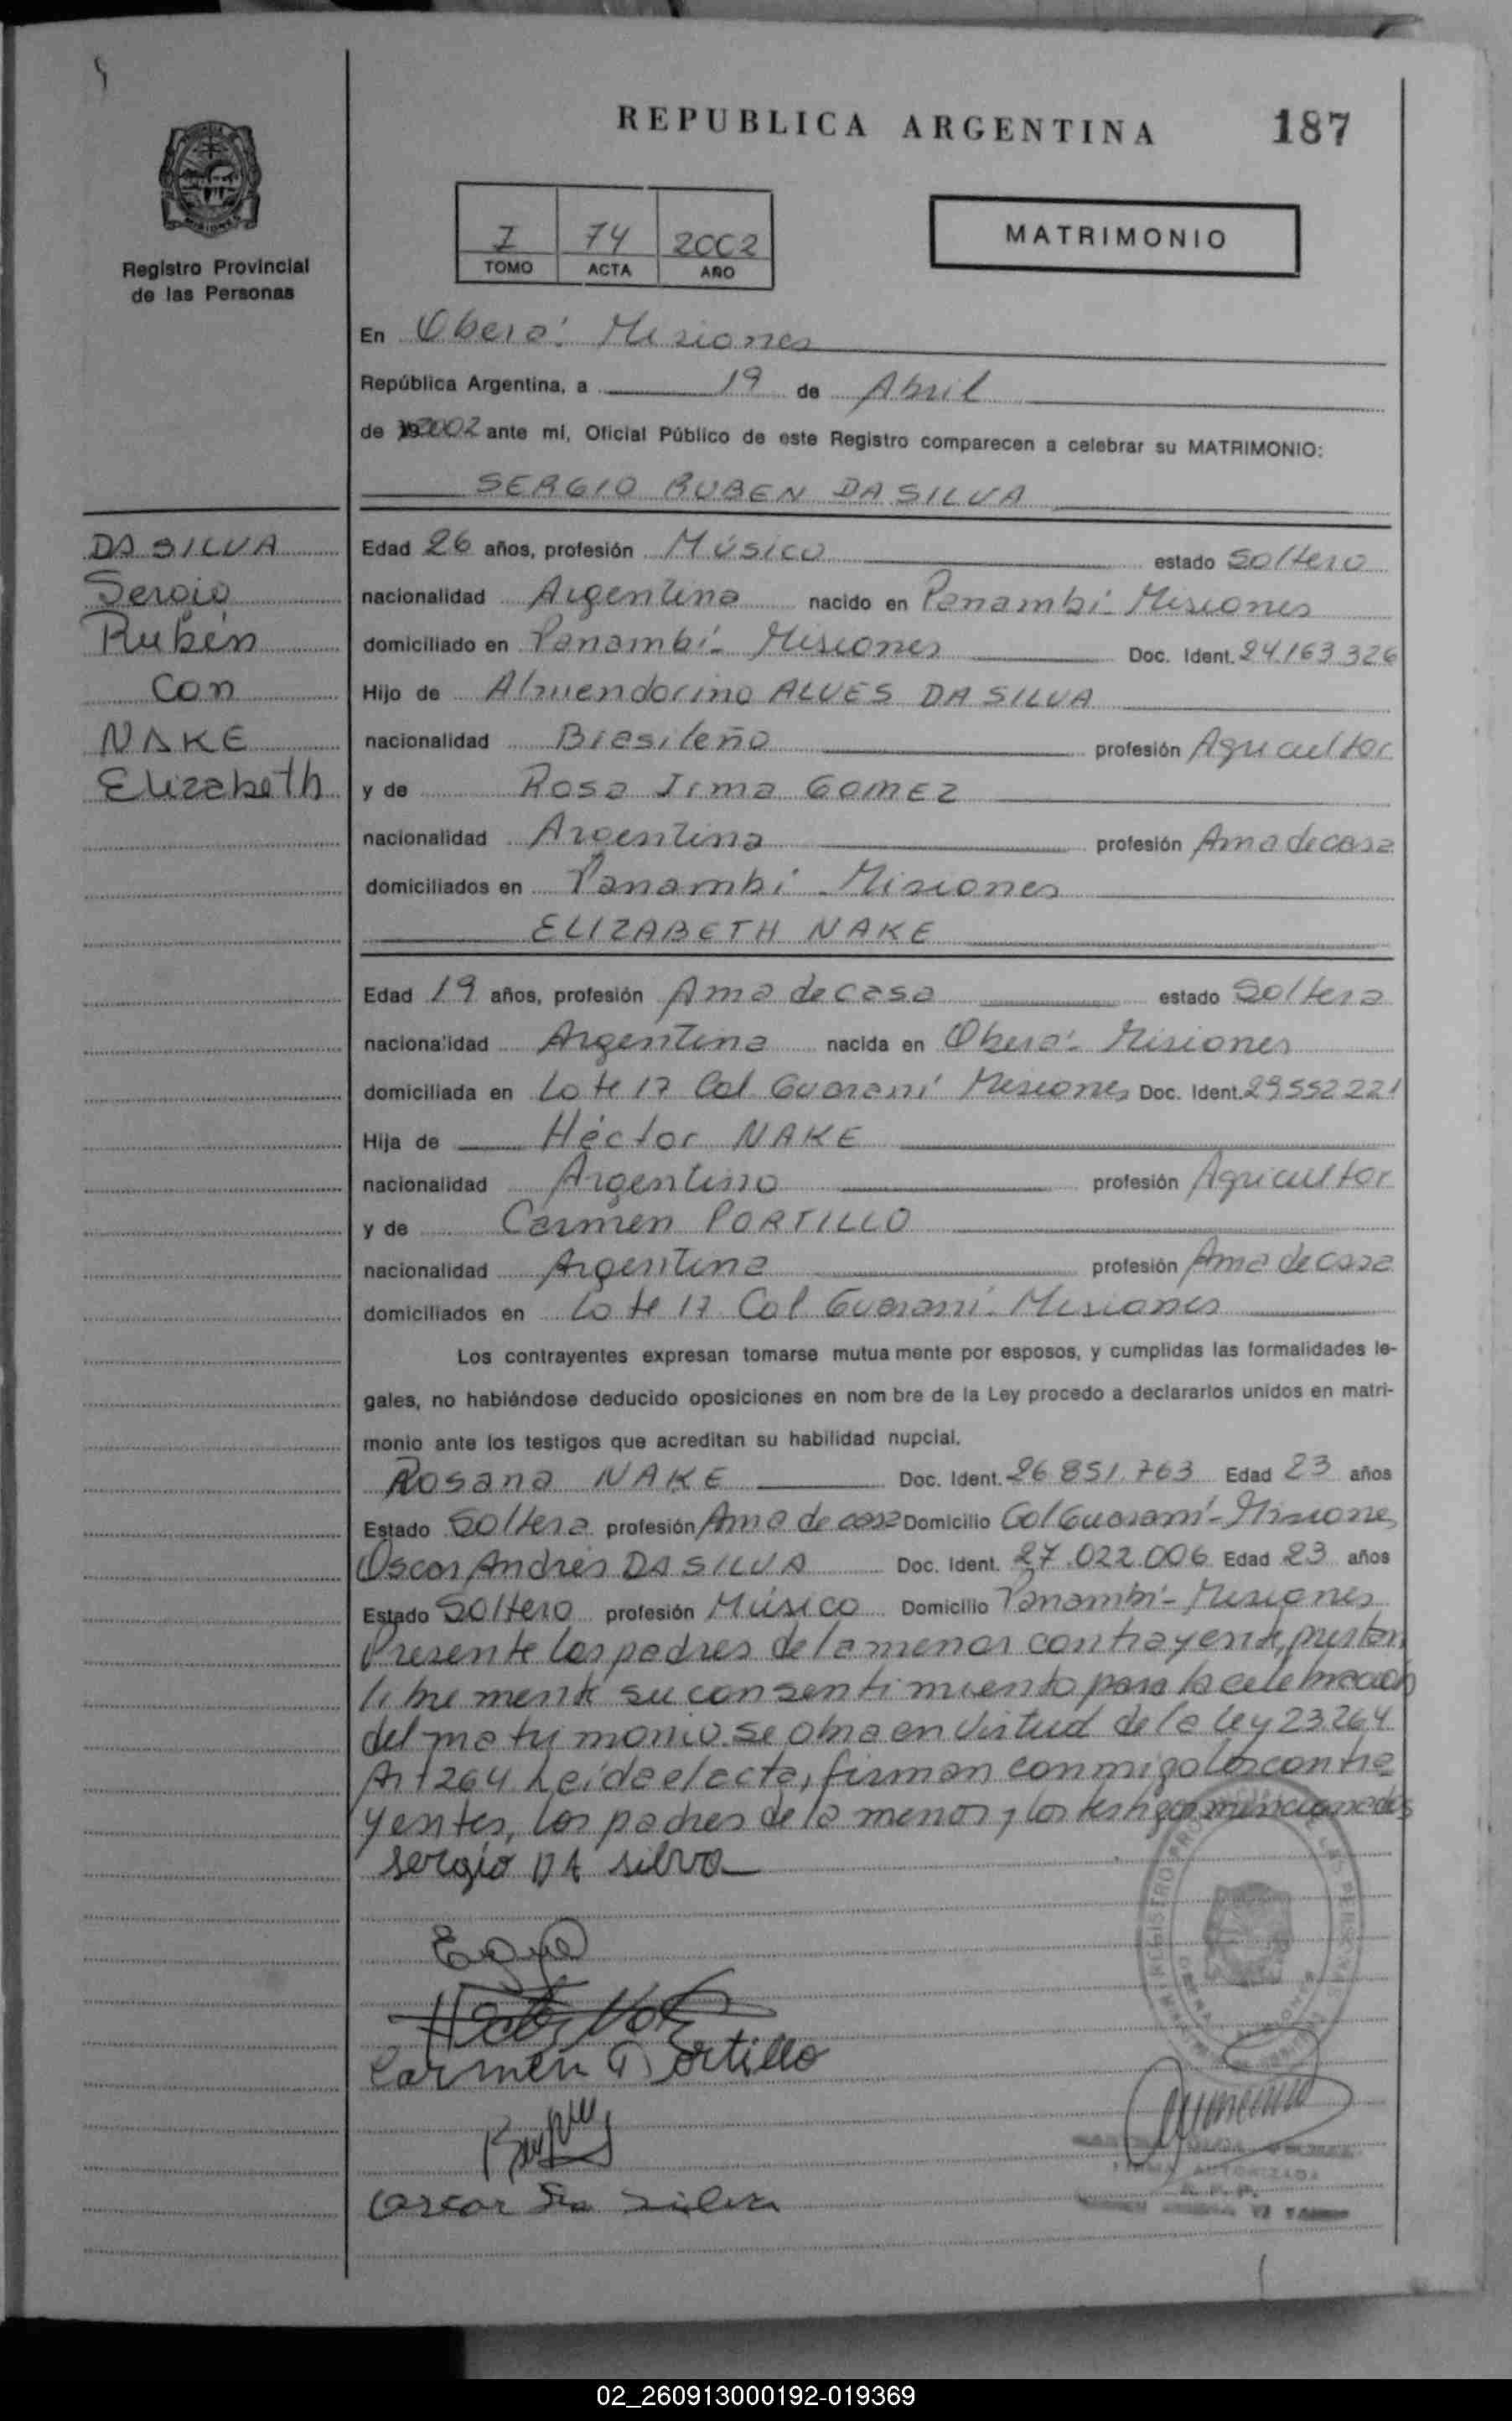 REPUBLICA ARGENTINA 187
I 74 2002
TOMO ACTA AÑO
MATRIMONIO
Registro Provincial
de las Personas
En Oberá: Misiones
República Argentina, a 19 de Abril
de 2002 ante mí, Oficial Público de este Registro comparecen a celebrar su MATRIMONIO:
SERGIO RUBEN DA SILVA
DA SILVA
Sergio
Rubén
Con
NAKE
Elizabeth
Edad 26 años, profesión Músico estado Soltero
nacionalidad Argentina nacido en Panambí- Misiones
domiciliado en Panambí- Misiones Doc. Ident. 24.163.326
Hijo de ALVES DA SILVA
nacionalidad Brasileño profesión Agricultor
y de Rosa Irma GOMEZ
nacionalidad Argentina profesión Ama de casa
domiciliados en Panambí - Misiones
ELIZABETH NAKE
Edad 19 años, profesión Ama de casa estado Soltera
nacionalidad Argentina nacida en Oberá- Misiones
domiciliada en Lote 17 Col Guaraní Misiones Doc. Ident. 29552221
Hija de Héctor NAKE
nacionalidad Argentino profesión Agricultor
y de Carmen PORTILLO
nacionalidad Argentina profesión Ama de casa
domiciliados en Lote 17 Col Guaraní- Misiones
Los contrayentes expresan tomarse mutua mente por esposos, y cumplidas las formalidades le-
gales, no habiéndose deducido oposiciones en nom bre de la Ley procedo a declararlos unidos en matri-
monio ante los testigos que acreditan su habilidad nupcial.
Rosana NAKE Doc. Ident. 26.851.763 Edad 23 años
Estado Soltera profesión Ama de casa Domicilio Col Guaraní- Misiones
Oscar Andrés DA SILVA Doc. Ident. 27.022.006 Edad 23 años
Estado Soltero profesión Músico Domicilio Panambí- Misiones
Presente los padres de la menor contrayente, prestan
libremente su consentimiento para la celebración
del matrimonio se obra en virtud de la Ley 23.264
Art 264 Leída el acta, firman conmigo los contra
yentes, los padres de la menor y los testigos mencionados
sergio DA silva
Carmen Portillo
oscar Da silva
FIRMA AUTORIZADA
R. P. P.
02_260913000192-019369